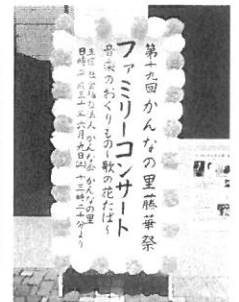 第十九回かんなの里藤華祭
ファミリーコンサート
音楽のおくりもの～歌の花たば～
主催 社会福祉法人かんな会 かんなの里
日時 平成三十年六月九日(土)十三時二十分より